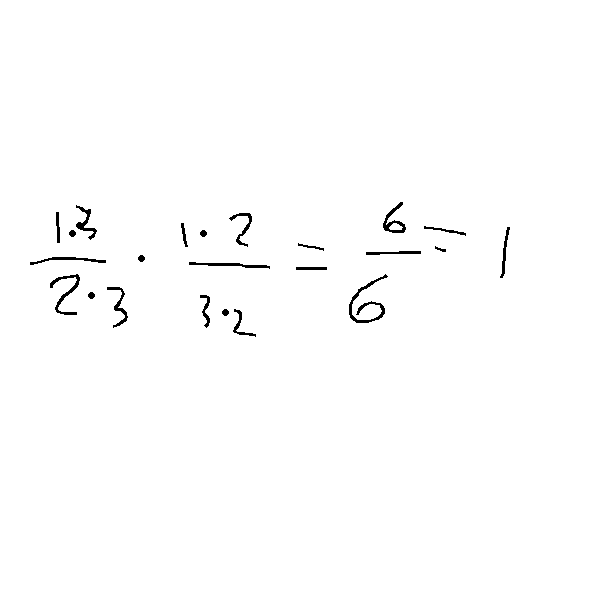 1·3/2·3 · 1·2/3·2 = 6/6 = 1